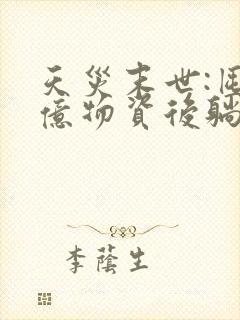 天災末世:囤
億物資後躺
李蔭生